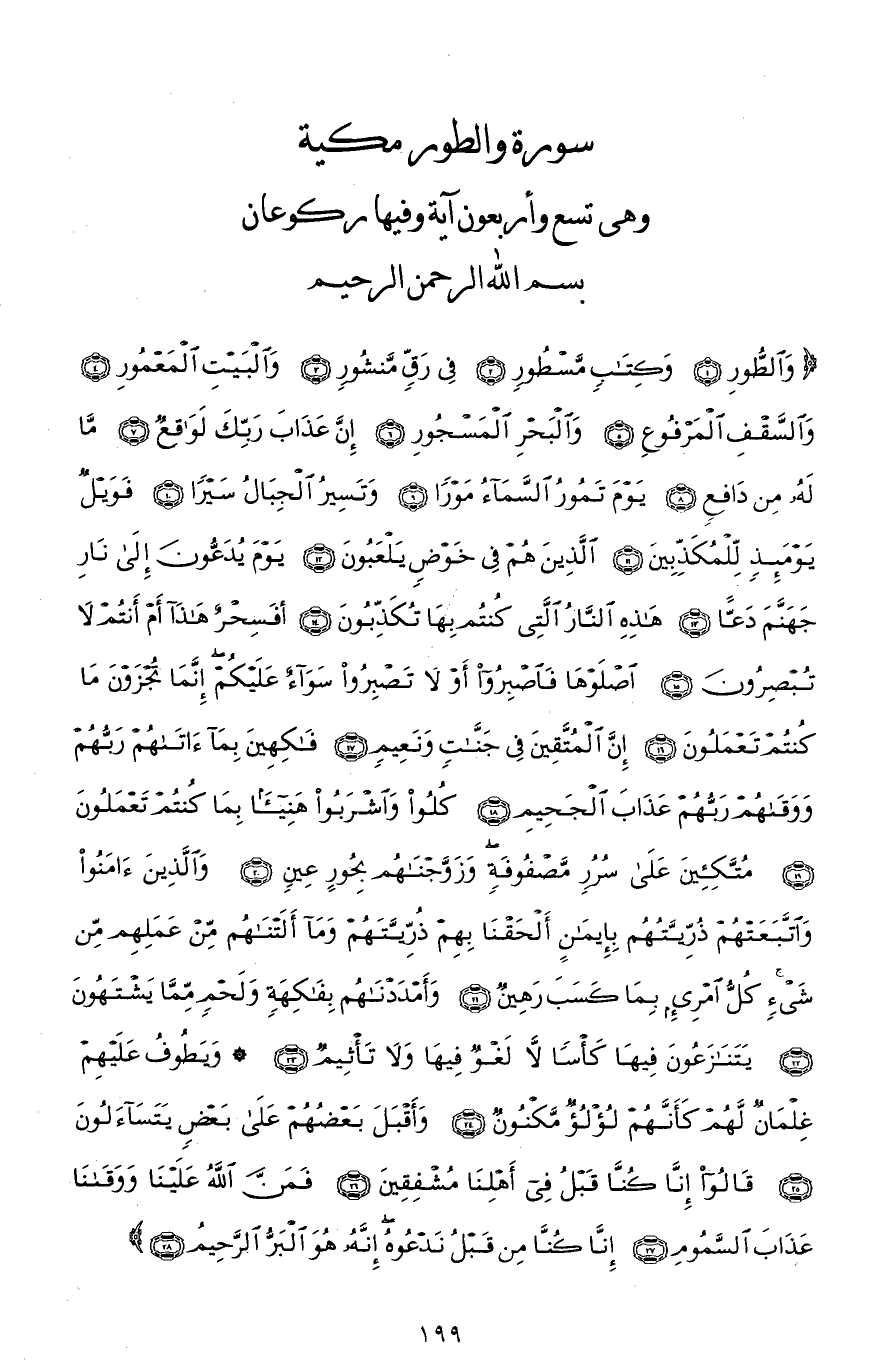 سورة والطور مكية
وهى تسع وأربعون آية وفيها ركوعان
بسم الله الرحمن الرحيم
﴿ وَٱلطُّورِ ١ وَكِتَٰبٍ مَّسْطُورٍ ٢ فِى رَقٍّ مَّنشُورٍ ٣ وَٱلْبَيْتِ ٱلْمَعْمُورِ ٤
وَٱلسَّقْفِ ٱلْمَرْفُوعِ ٥ وَٱلْبَحْرِ ٱلْمَسْجُورِ ٦ إِنَّ عَذَابَ رَبِّكَ لَوَٰقِعٌ ٧ مَّا
لَهُۥ مِن دَافِعٍ ٨ يَوْمَ تَمُورُ ٱلسَّمَآءُ مَوْرًا ٩ وَتَسِيرُ ٱلْجِبَالُ سَيْرًا ١٠ فَوَيْلٌ
يَوْمَئِذٍ لِّلْمُكَذِّبِينَ ١١ ٱلَّذِينَ هُمْ فِى خَوْضٍ يَلْعَبُونَ ١٢ يَوْمَ يُدَعُّونَ إِلَىٰ نَارِ
جَهَنَّمَ دَعًّا ١٣ هَٰذِهِ ٱلنَّارُ ٱلَّتِى كُنتُم بِهَا تُكَذِّبُونَ ١٤ أَفَسِحْرٌ هَٰذَآ أَمْ أَنتُمْ لَا
تُبْصِرُونَ ١٥ ٱصْلَوْهَا فَٱصْبِرُوٓا۟ أَوْ لَا تَصْبِرُوا۟ سَوَآءٌ عَلَيْكُمْ ۖ إِنَّمَا تُجْزَوْنَ مَا
كُنتُمْ تَعْمَلُونَ ١٦ إِنَّ ٱلْمُتَّقِينَ فِى جَنَّٰتٍ وَنَعِيمٍ ١٧ فَٰكِهِينَ بِمَآ ءَاتَىٰهُمْ رَبُّهُمْ
وَوَقَىٰهُمْ رَبُّهُمْ عَذَابَ ٱلْجَحِيمِ ١٨ كُلُوا۟ وَٱشْرَبُوا۟ هَنِيٓـًٔۢا بِمَا كُنتُمْ تَعْمَلُونَ
١٩ مُتَّكِـِٔينَ عَلَىٰ سُرُرٍ مَّصْفُوفَةٍ ۖ وَزَوَّجْنَٰهُم بِحُورٍ عِينٍ ٢٠ وَٱلَّذِينَ ءَامَنُوا۟
وَٱتَّبَعَتْهُمْ ذُرِّيَّتُهُم بِإِيمَٰنٍ أَلْحَقْنَا بِهِمْ ذُرِّيَّتَهُمْ وَمَآ أَلَتْنَٰهُم مِّنْ عَمَلِهِم مِّن
شَىْءٍ ۚ كُلُّ ٱمْرِئٍۭ بِمَا كَسَبَ رَهِينٌ ٢١ وَأَمْدَدْنَٰهُم بِفَٰكِهَةٍ وَلَحْمٍ مِّمَّا يَشْتَهُونَ
٢٢ يَتَنَٰزَعُونَ فِيهَا كَأْسًا لَّا لَغْوٌ فِيهَا وَلَا تَأْثِيمٌ ٢٣ * وَيَطُوفُ عَلَيْهِمْ
غِلْمَانٌ لَّهُمْ كَأَنَّهُمْ لُؤْلُؤٌ مَّكْنُونٌ ٢٤ وَأَقْبَلَ بَعْضُهُمْ عَلَىٰ بَعْضٍ يَتَسَآءَلُونَ
٢٥ قَالُوٓا۟ إِنَّا كُنَّا قَبْلُ فِىٓ أَهْلِنَا مُشْفِقِينَ ٢٦ فَمَنَّ ٱللَّهُ عَلَيْنَا وَوَقَىٰنَا
عَذَابَ ٱلسَّمُومِ ٢٧ إِنَّا كُنَّا مِن قَبْلُ نَدْعُوهُ ۖ إِنَّهُۥ هُوَ ٱلْبَرُّ ٱلرَّحِيمُ ٢٨ ﴾
١٩٩